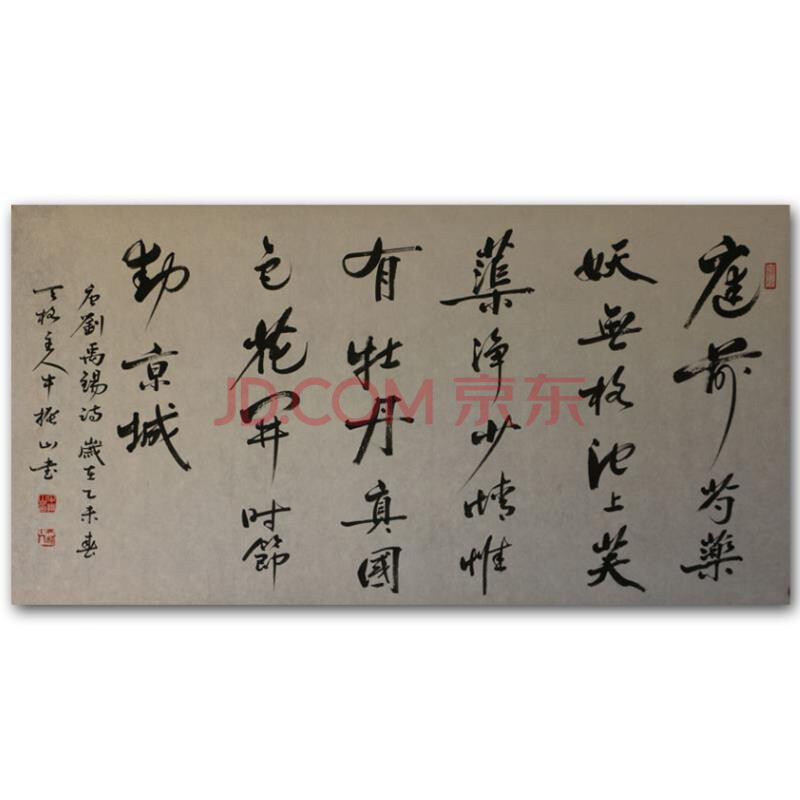 庭前芍藥
妖無格池上芙
蕖淨少情惟
有牡丹真國
色花開时節
動京城
右劉禹錫詩 歲在乙未春
格主人牛振山書
JD.COM 京东